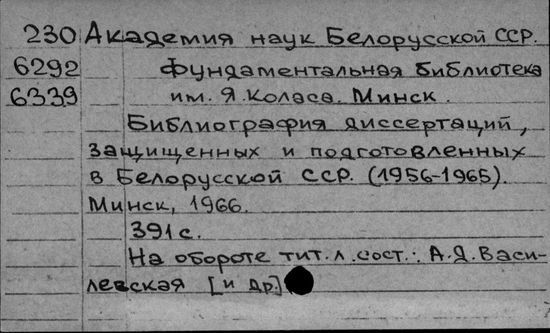 230 Академия наук Белорусской ССР.
6292 Фундаментальная библиотека
6339 им. Я. Коласа. Минск.
Библиография диссертаций,
защищенных и подготовленных
в Белорусской ССР. (1956-1965).
Минск, 1966.
391 с.
На обороте тит. л. сост.: А.Я. Васи-
левская [и др.]